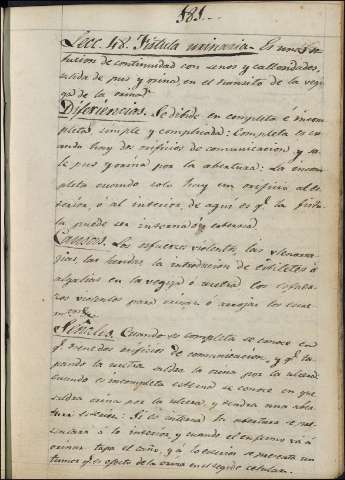 181..
Lecc. 48. Fistula urinaria. Es una so-
lucion de continuidad con senos y callosidades,
salida de pus y orina, en el transito de la vegi-
ga de la orina.
Diferiencias. Se divide en completa é incom-
pleta, simple y complicada: Completa es cu-
ando hay dos orificios de comunicacion, y sa-
le pus y orina por la abertura: La incom-
pleta cuando solo hay un orificio al es-
terior, ó al interior, de aqui es q.e la fistu-
la puede ser interna ó externa.
Causas. Los esfuerzos violentos, las
las heridas la introducion de estiletes ó
algalias en la vegiga ó uretra los esfuer-
zos violentos para orinar ó arrojar los escre-
mentos.
Señales. Cuando es completa se conoce en
q.e tiene dos orificios de comunicacion, y q.e ta-
pando la uretra saldra la orina por la ulcera
cuando es incompleta esterna se conoce en que
saldra orina por la ulcera, y tendra una aber-
tura esterior: Si es interna la abertura se pre-
sentará á lo interior, y cuando el enfermo vá á
orinar tapa el caño, y á lo esterior se presenta un
tumor q.e es efecto de la orina en el tegido celular.